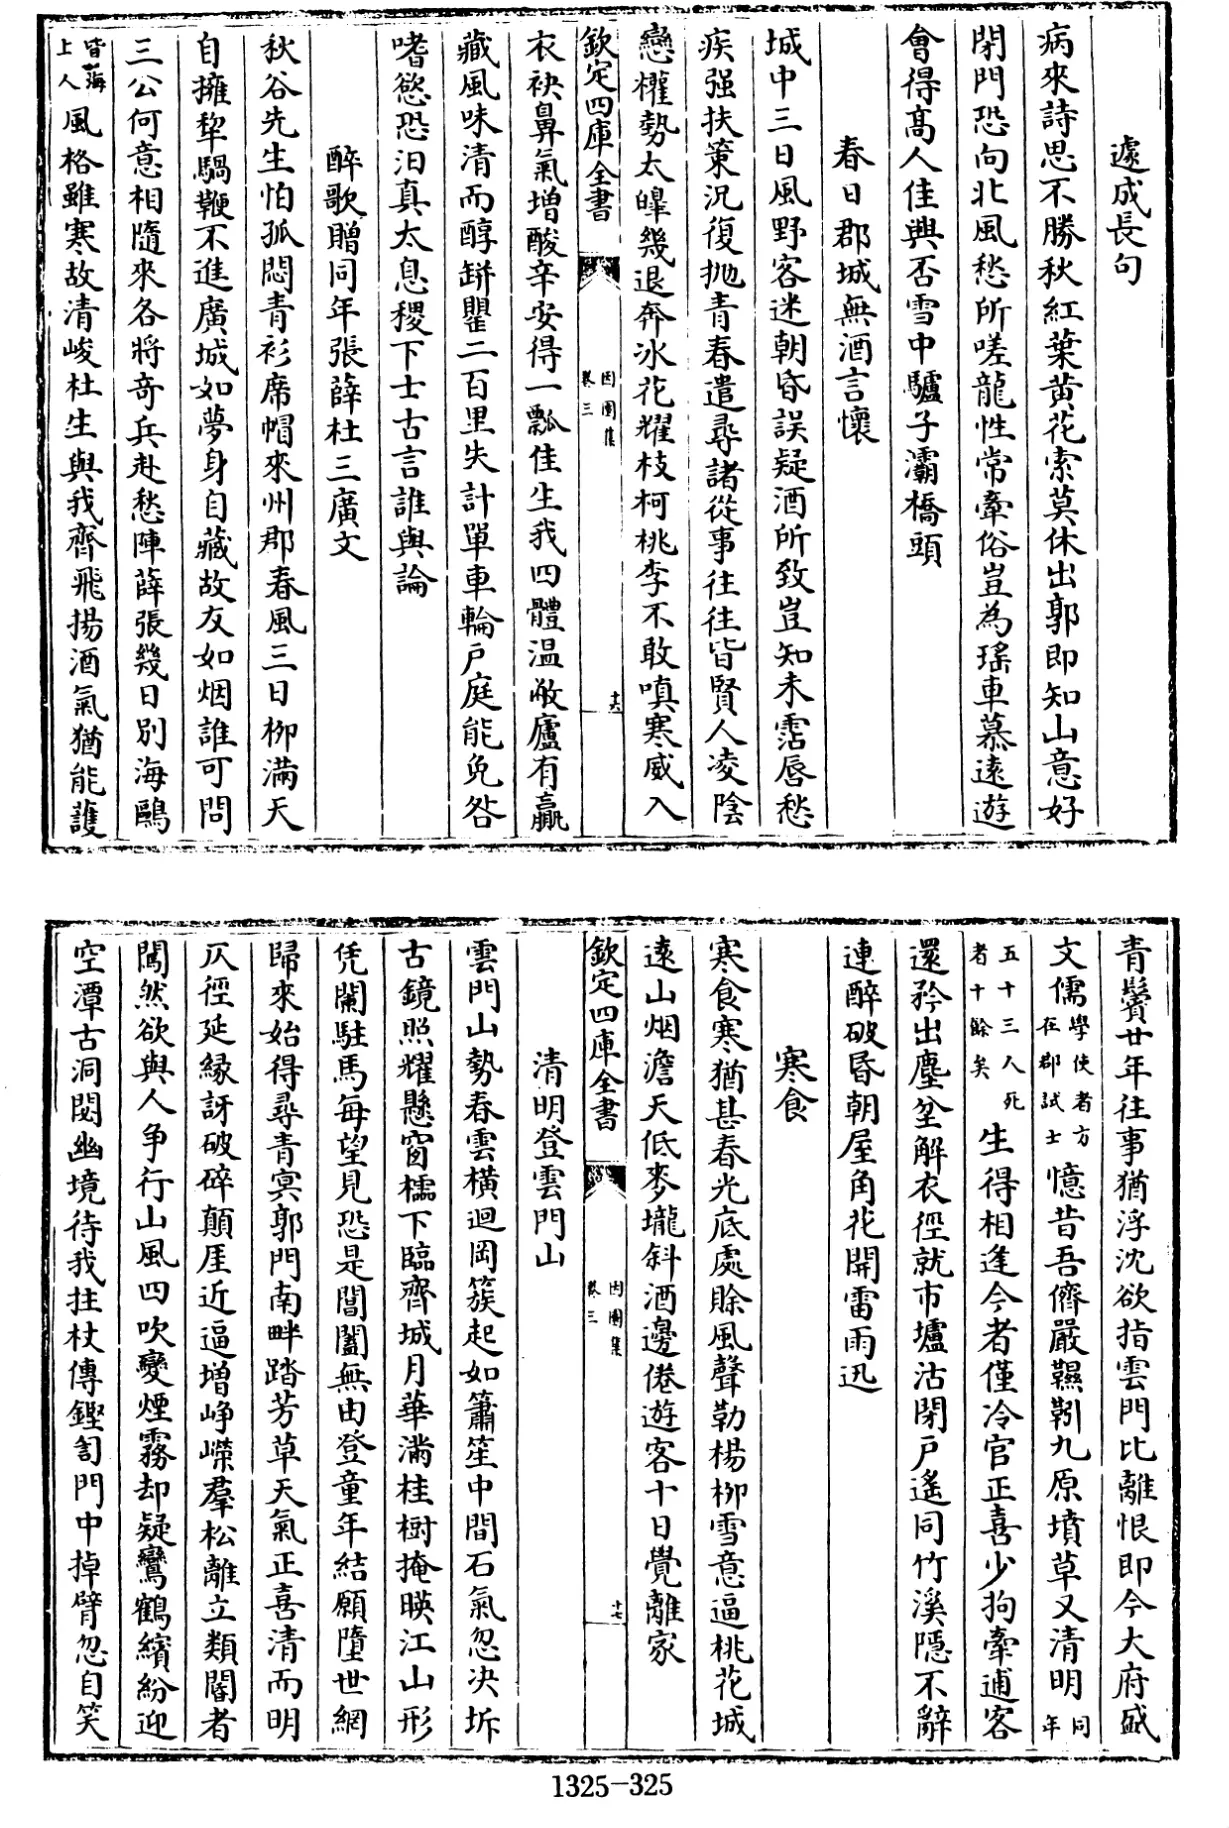 遽成長句
病來詩思不勝秋紅葉黄花索莫休出郭即知山意好
閉門恐向北風愁所嗟龍性常牽俗豈為瑤車慕遠遊
會得髙人佳興否雪中驢子灞橋頭
春日郡城無酒言懷
城中三日風野客迷朝昏誤疑酒所致豈知未霑唇愁
疾强扶策況復抛青春遣尋諸從事往往皆賢人凌陰
戀權勢太皥幾退奔冰花耀枝柯桃李不敢嗔寒威入
欽定四庫全書
因園集
卷三
十六
衣袂鼻氣増酸辛安得一瓢佳生我四體温敝廬有贏
藏風味清而醇缾罌二百里失計單車輪戸庭能免咎
嗜慾恐汩真太息稷下士古言誰與論
醉歌贈同年張薛杜三廣文
秋谷先生怕孤悶青衫席帽來州郡春風三日柳滿天
自擁犂騧鞭不進廣城如夢身自藏故友如烟誰可問
三公何意相隨來各將奇兵赴愁陣薛張幾日別海鷗
皆海
上人
風格雖寒故清峻杜生與我齊飛揚酒氣猶能護
青鬢廿年往事猶浮沈欲指雲門比離恨即今大府盛
文儒
學使者方
在郡試士
憶昔吾儕嚴鞿靷九原墳草又清明
同
年
五十三人死
者十餘矣
生得相逢今者僅冷官正喜少拘牽逋客
還矜出塵坌解衣徑就市壚沽閉戸遙同竹溪隠不辭
連醉破昏朝屋角花開雷雨迅
寒食
寒食寒猶甚春光底處賒風聲勒楊柳雪意逼桃花城
遠山烟澹天低麥壠斜酒邊倦遊客十日覺離家
欽定四庫全書
因園集
卷三
十七
清明登雲門山
雲門山勢春雲橫迴岡簇起如簫笙中間石氣忽決坼
古鏡照耀懸窗櫺下臨齊城月華滿桂樹掩暎江山形
凭闌駐馬每望見恐是閶闔無由登童年結願墮世網
歸來始得尋青㝠郭門南畔踏芳草天氣正喜清而明
仄徑延緣訝破碎顛厓近逼増崢嶸羣松離立類閽者
闖然欲與人爭行山風四吹變煙霧却疑鸞鶴繽紛迎
空潭古洞閟幽境待我拄杖傳鏗訇門中掉臂忽自笑
1325-325